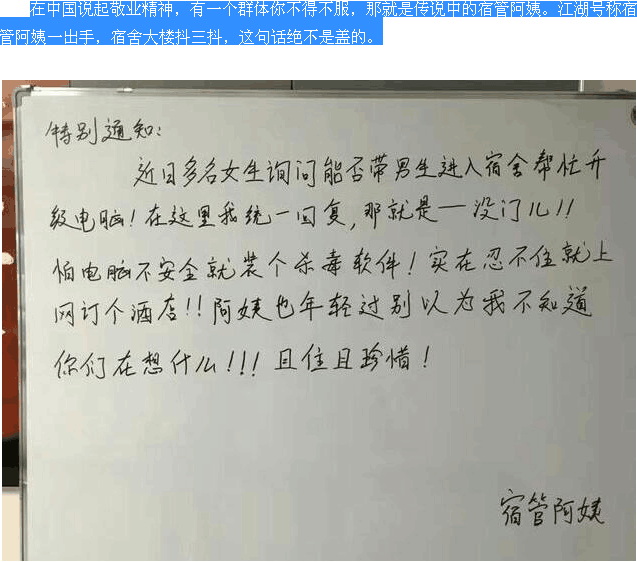 在中国说起敬业精神，有一个群体你不得不服，那就是传说中的宿管阿姨。江湖号称宿
管阿姨一出手，宿舍大楼抖三抖，这句话绝不是盖的。
特别通知：
近日多名女生询问能否带男生进入宿舍帮忙升
级电脑！在这里我统一回复，那就是——没门儿！！
怕电脑不安全就装个杀毒软件！实在忍不住就上
网订个酒店！！阿姨也年轻过别以为我不知道
你们在想什么！！！且住且珍惜！
宿管阿姨